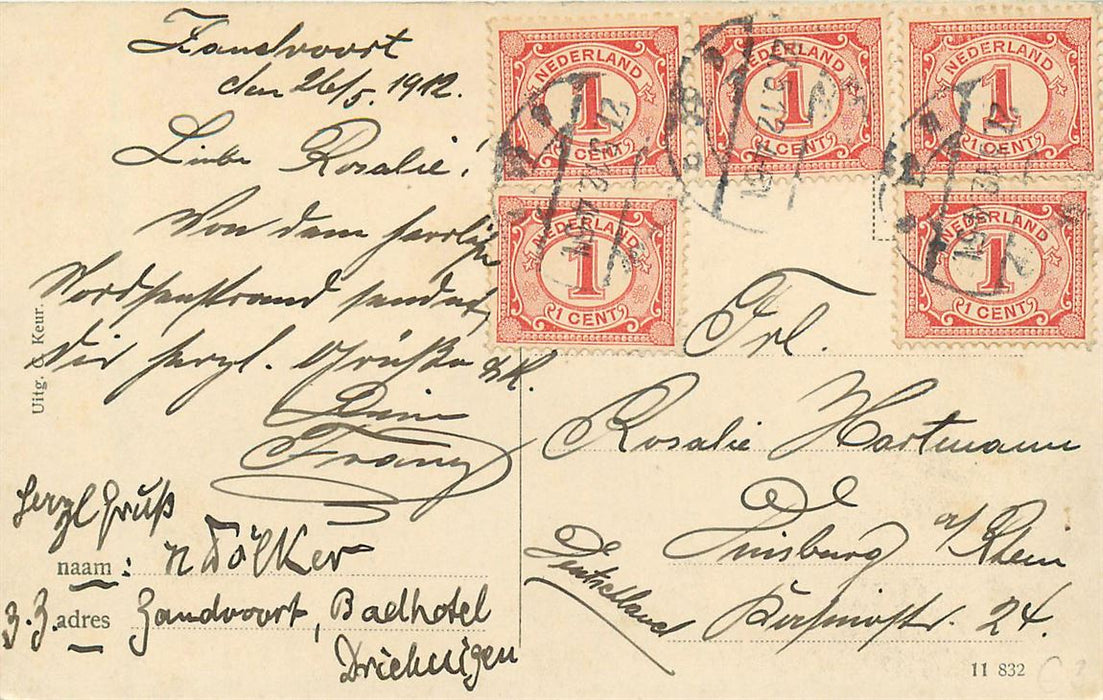 Zandvoort
den 26/5. 1912.
Liebe Rosalie!
Von dem herrlichen
Nordseestrand sendet
Dir herzl. Grüße & K.
Dein
Franz
herzl Gruß
naam: Völker
z.Z. adres Zandvoort, Badhotel
Driehuizen
Uitg. C. Keur.
NEDERLAND
1
1 CENT
NEDERLAND
1
1 CENT
NEDERLAND
1
1 CENT
NEDERLAND
1
1 CENT
NEDERLAND
1
1 CENT
Frl.
Rosalie Hartmann
Duisburg a/Rhein
Deutschland
24.
11 832